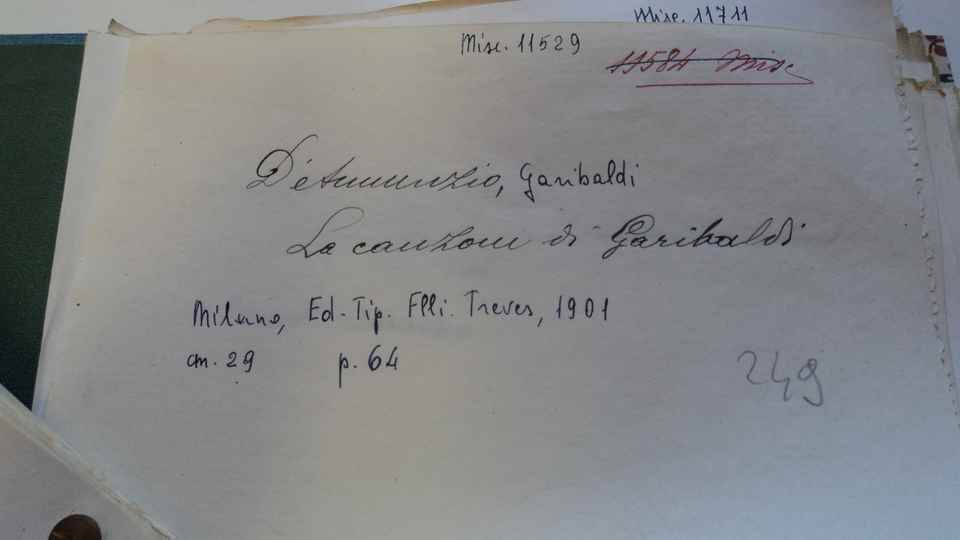 Misc. 11711
Misc. 11529
11584 Misc
D'Annunzio, Garibaldi
La canzone di Garibaldi
Milano, Ed-Tip. Flli. Treves, 1901
cm. 29 p. 64
249